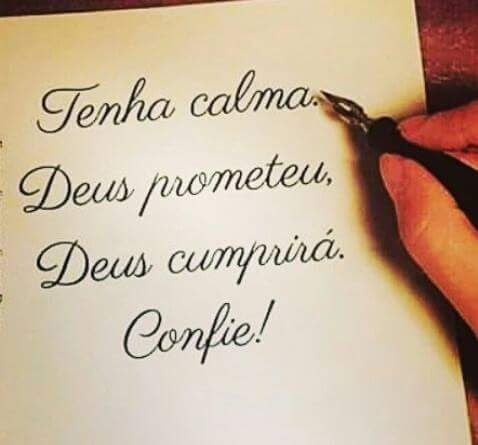 Tenha calma.
Deus prometeu,
Deus cumprirá.
Confie!